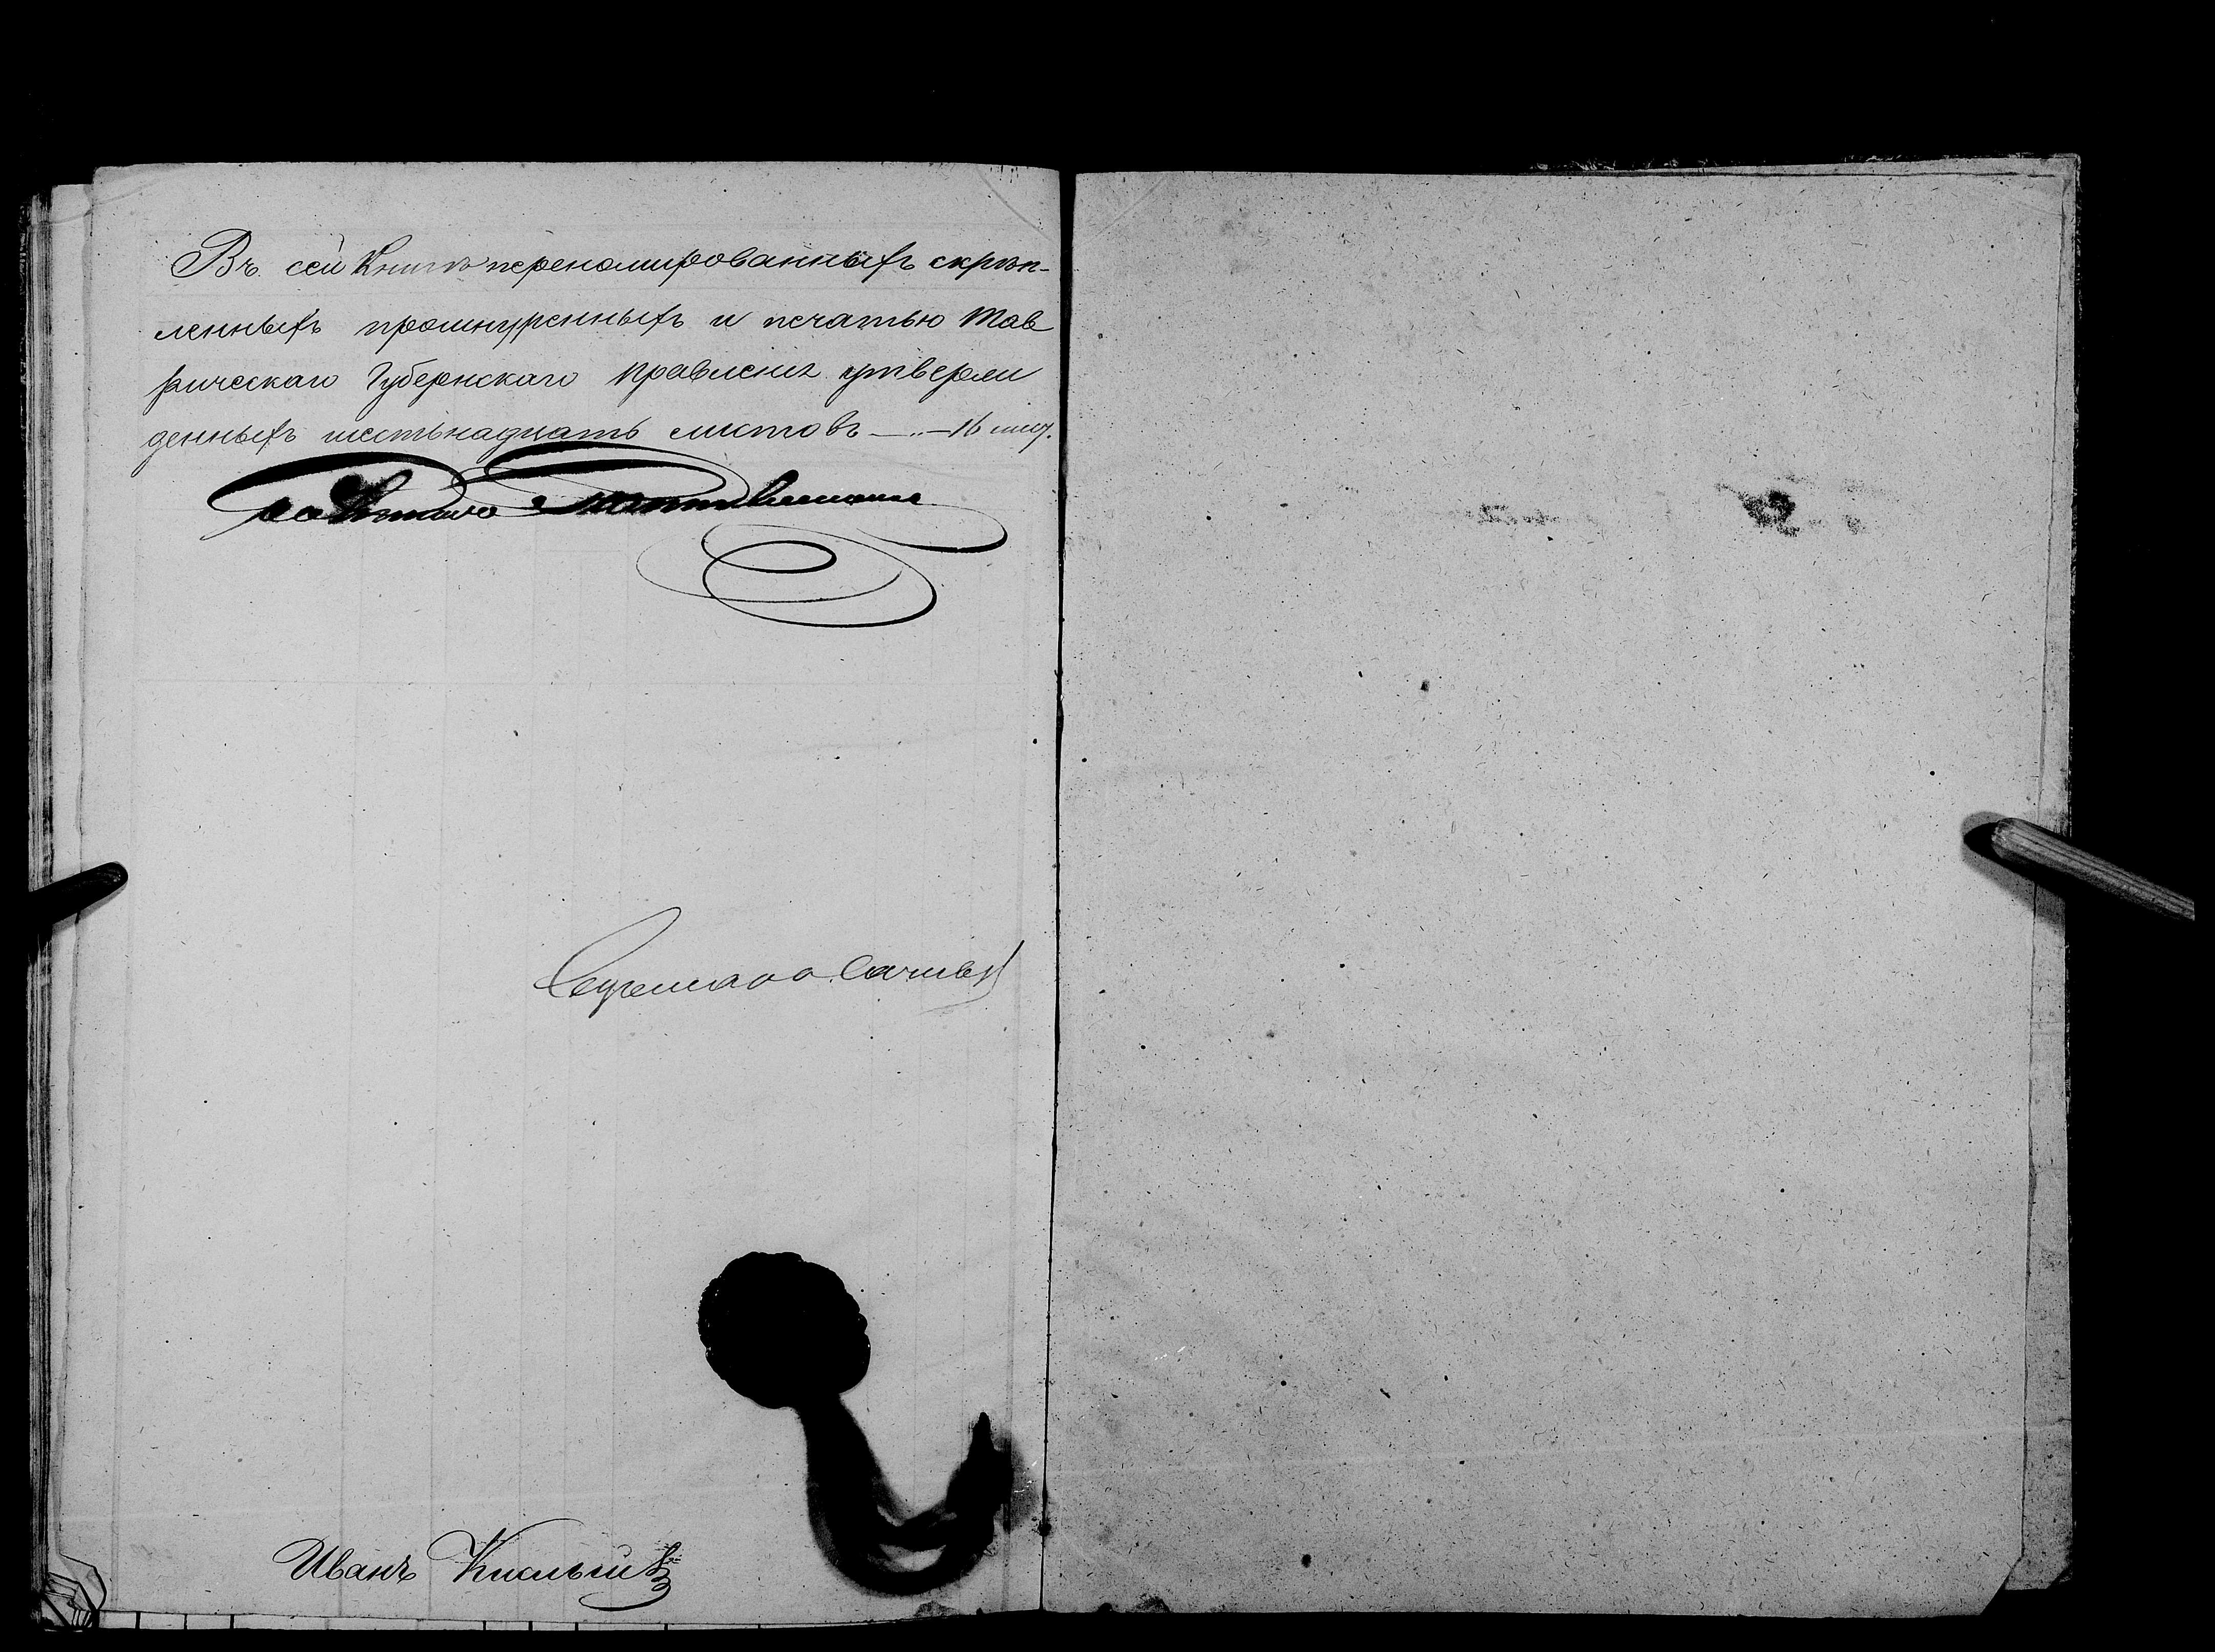 Въ сей Книгѣ переномированныхъ скрѣп-
ленныхъ прошнуренныхъ и печатью Тав
рическаго Губернскаго правленiя утверж
денныхъ шестьнадцать листовъ —„— 16 лист.
Совѣтникъ
Иванъ Кислый